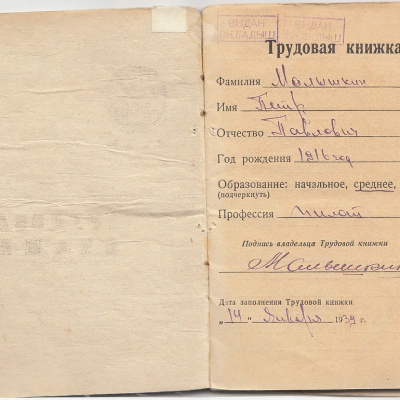 ВЫДАН ВКЛАДЫШ ВЫДАН ВКЛАДЫШ
Трудовая книжка
Фамилия Малышкин
Имя Петр
Отчество Павлович
Год рождения 1916 год
Образование: начальное, среднее,
(подчеркнуть)
Профессия пилот
Подпись владельца Трудовой книжки
Малышкин
Дата заполнения Трудовой книжки
„14" января 1939 г.